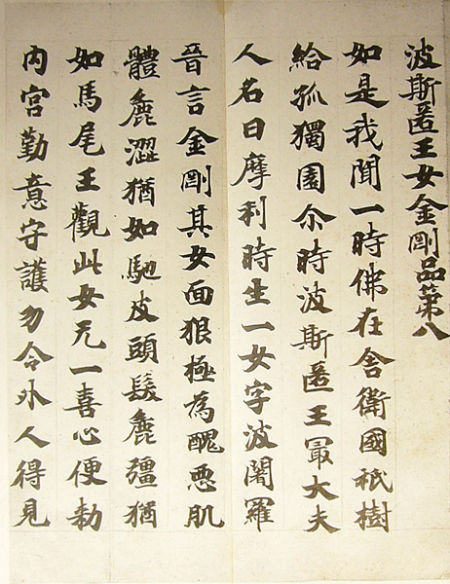 波斯匿王女金剛品第八
如是我聞一時佛在舍衛國祇樹
給孤獨園尒時波斯匿王㝡大夫
人名曰摩利時生一女字波闍羅
晉言金剛其女面狠極為醜惡肌
體麁澀猶如馳皮頭髮麁彊猶
如馬尾王觀此女无一喜心便勑
內宮勤意守護勿令外人得見